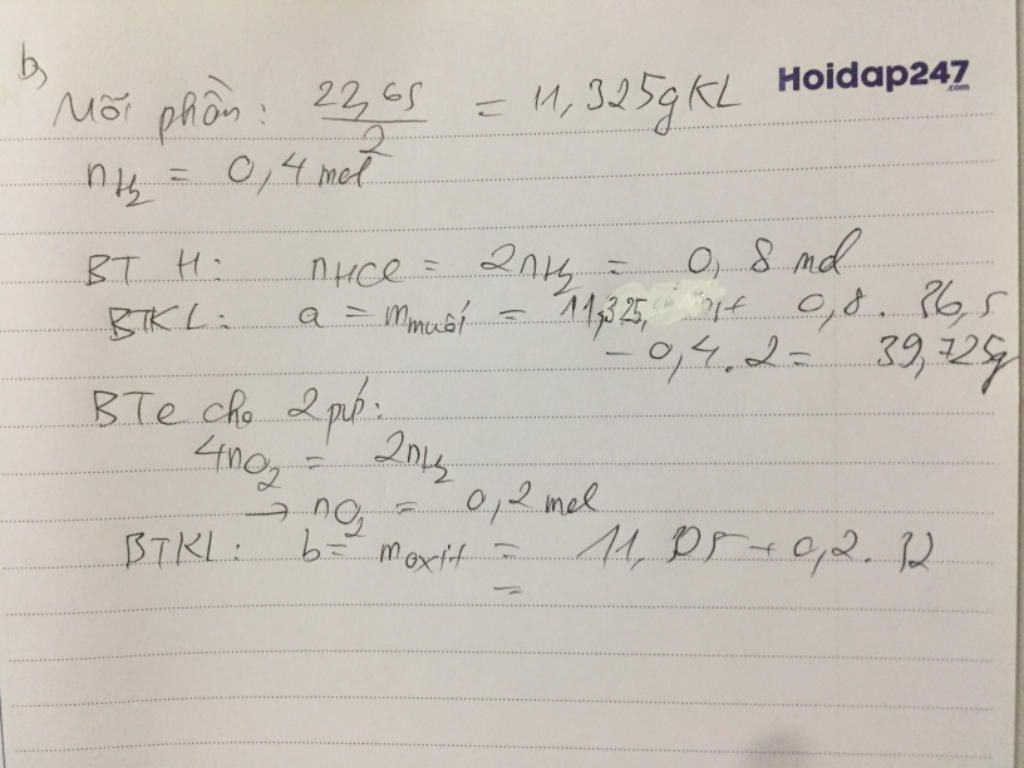 b,
Hoidap247
.com
Mỗi phần: 22,65 / 2 = 11,325g KL
nH2 = 0,4 mol
BT H: nHCl = 2nH2 = 0,8 mol
BTKL: a = mmuối = 11,325 + 0,8 . 36,5
- 0,4 . 2 = 39,725g
BTe cho 2 pư:
4nO2 = 2nH2
→ nO2 = 0,2 mol
BTKL: b = moxit = 11, + 0,2 . 32
=